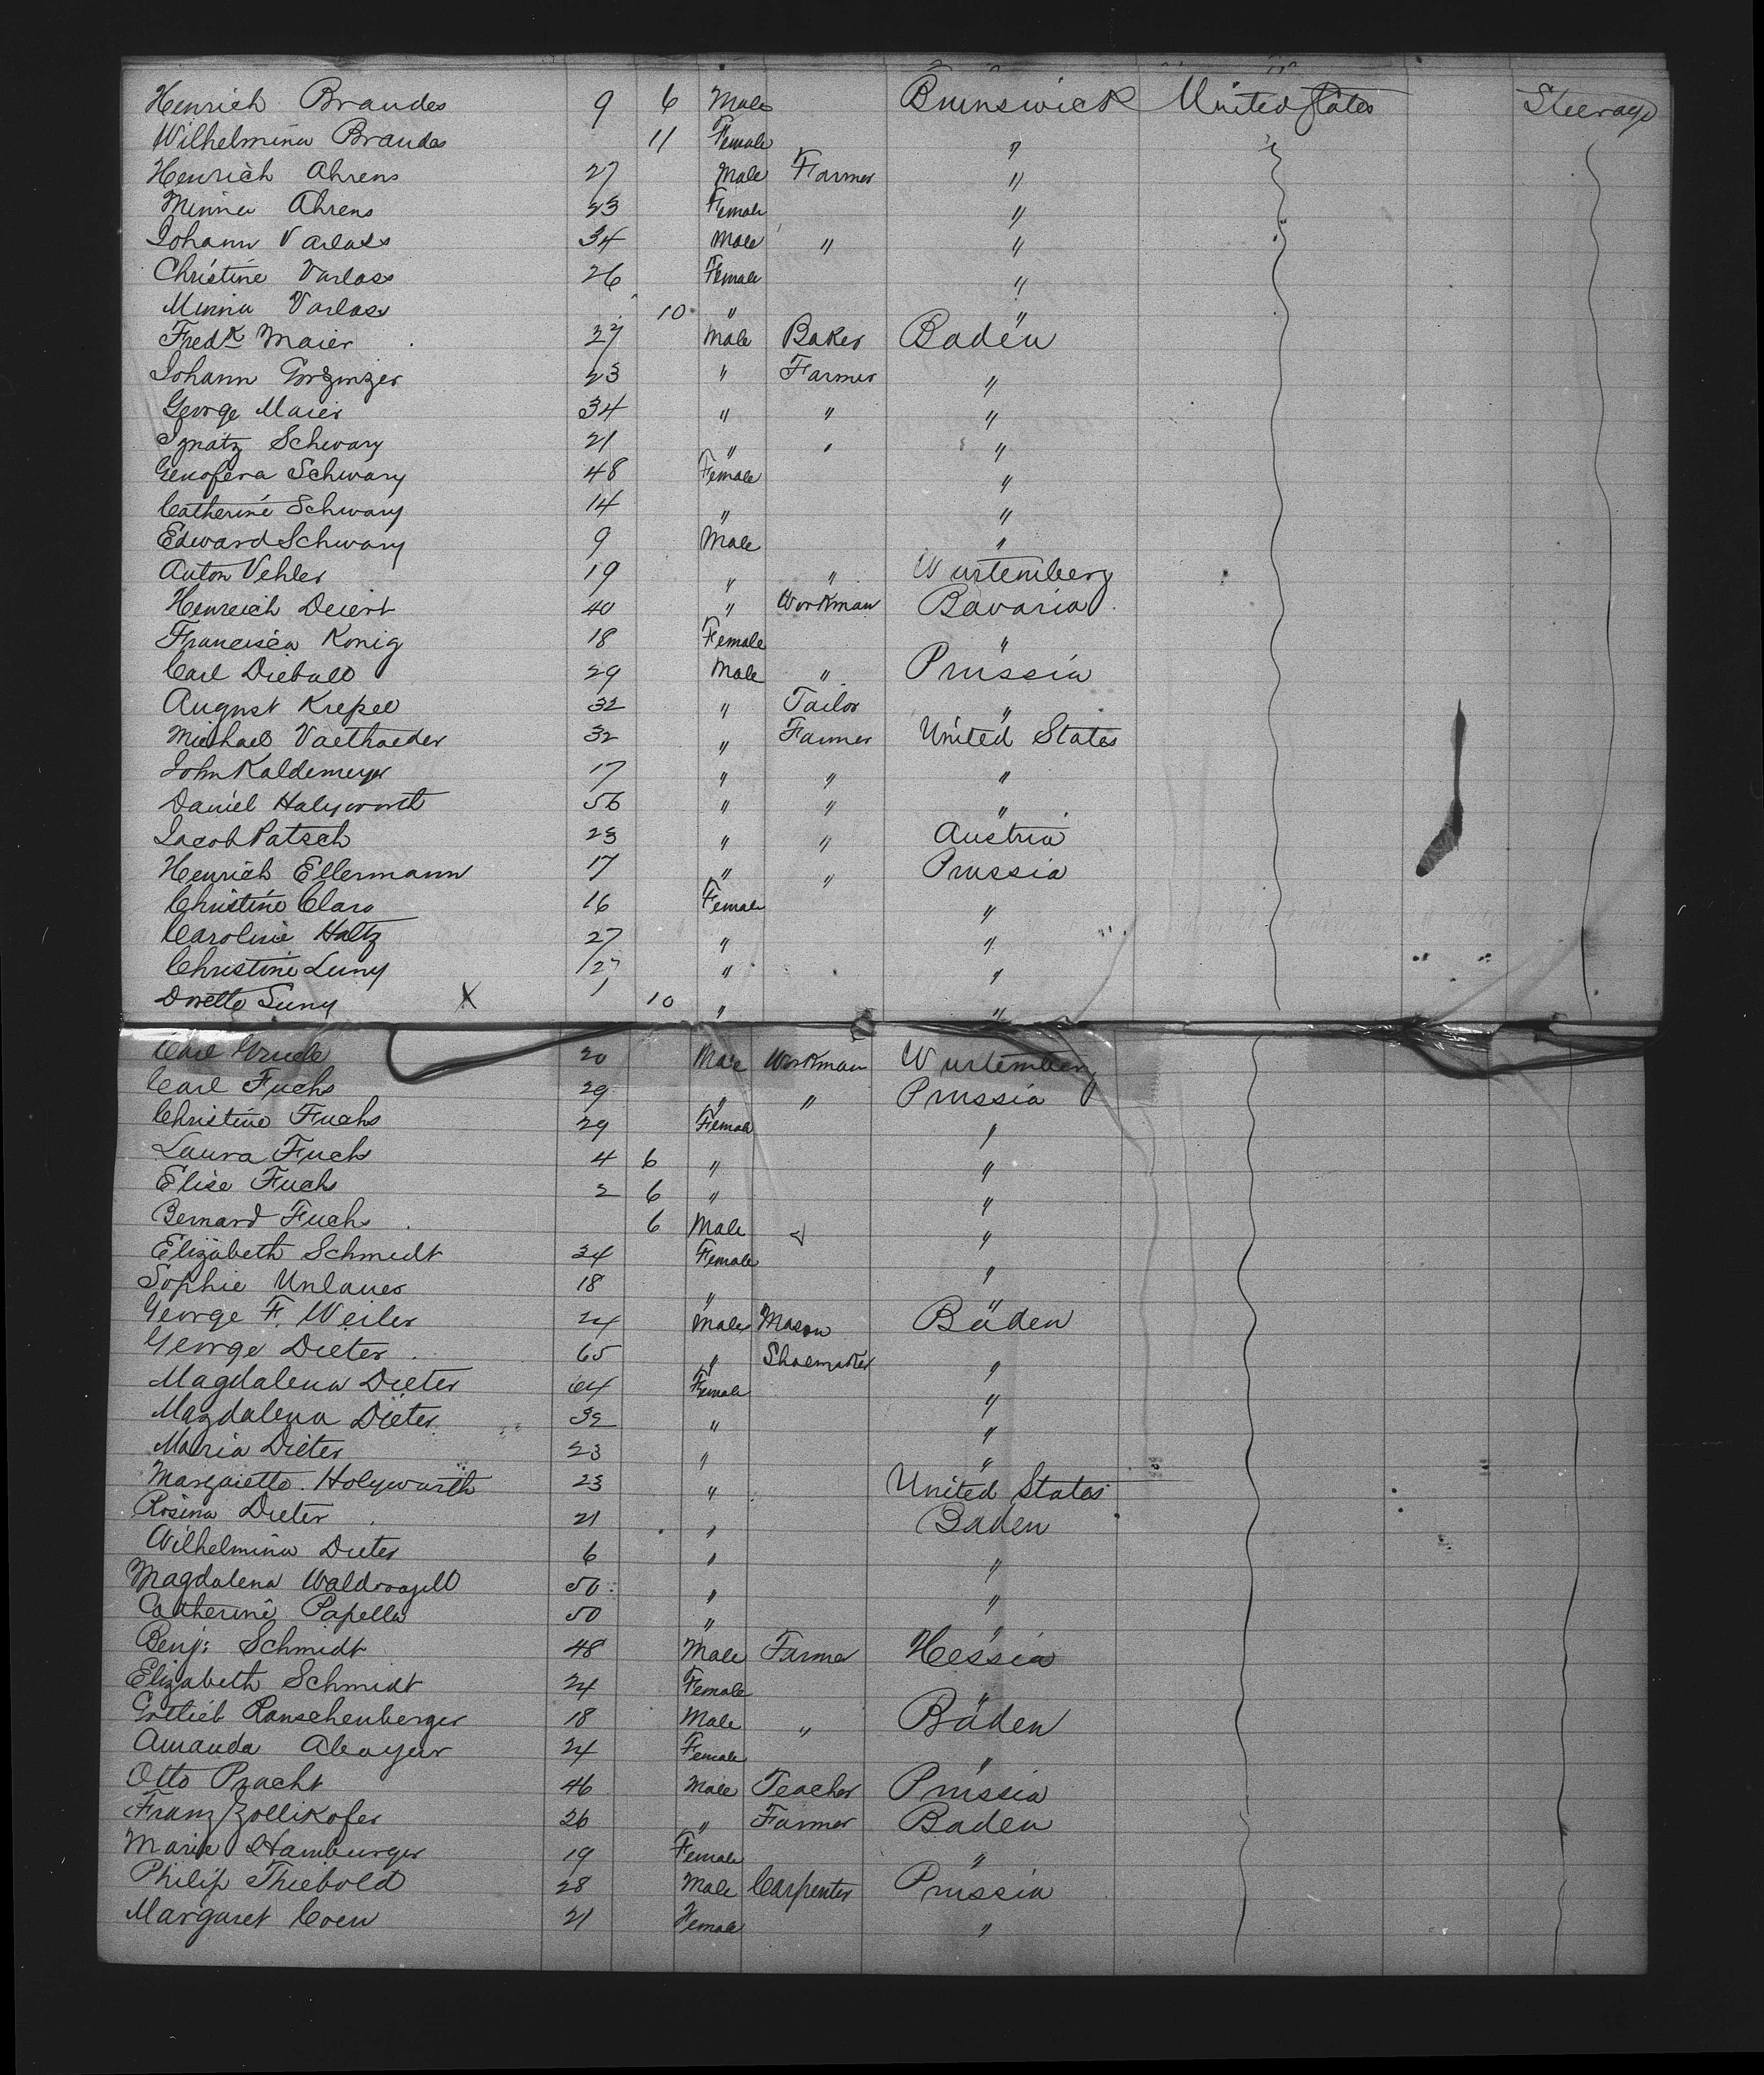 Henrich Brandes 9 6 Male Brunswick United States Steerage
Wilhelmina Brandes 11 Female "
Henrich Ahrens 27 Male Farmer "
Minna Ahrens 23 Female "
Johann Varlass 34 Male " "
Christine Varlass 26 Female "
Minna Varlass 10 " "
Fredk Maier 27 Male Baker Baden
Johann 23 " Farmer "
George Maier 34 " " "
Ignatz Schwarz 21 " " "
Genofeva Schwarz 48 Female "
Catherine Schwarz 14 " "
Edward Schwarz 9 Male "
Anton Vehler 19 " " Wurtemberg
Henreich Deiert 40 " Workman Bavaria
Francisca Konig 18 Female "
Carl Dieball 29 Male " Prussia
August Krepel 32 " Tailor "
Michael Vaethaeder 32 " Farmer United States
John Kaldemeyer 17 " " "
Daniel Holyworth 56 " " "
Jacob Patsch 23 " " Austria
Henrich Ellermann 17 " " Prussia
Christine Claro 16 Female "
Caroline Holtz 27 " "
Christine Luny 27 " "
Dorette Luny X 1 10 " "
Carl 20 Male Workman Wurtemberg
Carl Fuchs 29 " " Prussia
Christine Fuchs 29 Female "
Laura Fuchs 4 6 " "
Elise Fuchs 2 6 " "
Bernard Fuchs 6 Male "
Elizabeth Schmidt 34 Female "
Sophie Unlauer 18 " "
George F. Weiler 24 Male Mason Baden
George Dieter 65 " Shoemaker "
Magdalena Dieter 64 Female "
Magdalena Dieter 32 " "
Maria Dieter 23 " "
Margaretto Holyworth 23 " United States
Rosina Dieter 21 " Baden
Wilhelmina Dieter 6 " "
Magdalena Waldvogell 50 " "
Catherine Papella 50 " "
Benj: Schmidt 48 Male Farmer Hessia
Elizabeth Schmidt 24 Female "
Gottlieb Ranschenberger 18 Male " Baden
Amanda 24 Female "
Otto Pracht 46 Male Teacher Prussia
Franz Zollikofer 26 " Farmer Baden
Marie Hamburger 19 Female "
Philip Thiebold 28 Male Carpenter Prussia
Margaret Coen 21 Female "